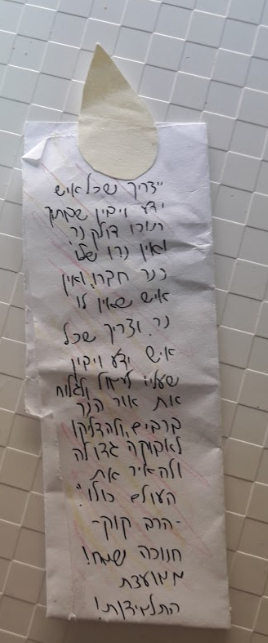 "צריך שכל איש
ידע ויבין שבתוך
תוכו דולק נר
ואין נרו שלו
כנר חברו, ואין
איש שאין לו
נר. וצריך שכל
איש ידע ויבין
שעליו לעמול ולגלות
את אור הנר
ברבים, ולהדליקו
לאבוקה גדולה
ולהאיר את
העולם כולו".
-הרב קוק-
חנוכה שמח!
ממועצת
התלמידות!